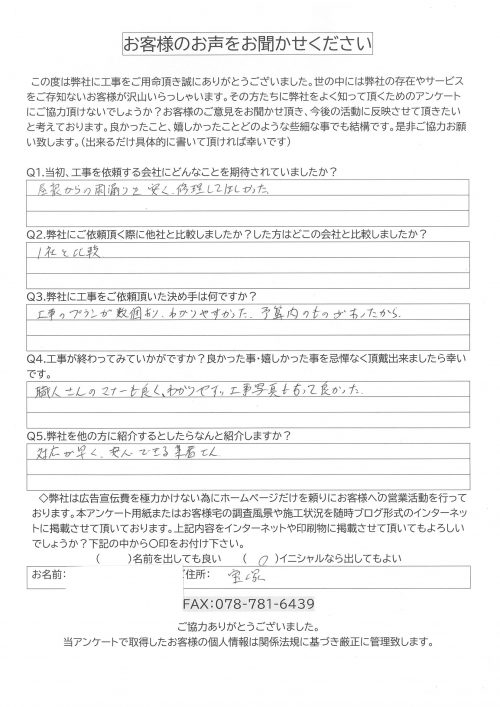 お客様のお声をお聞かせください
この度は弊社に工事をご用命頂き誠にありがとうございました。世の中には弊社の存在やサービス
をご存知ないお客様が沢山いらっしゃいます。その方たちに弊社をよく知って頂くためのアンケート
にご協力頂けないでしょうか？お客様のご意見をお聞かせ頂き、今後の活動に反映させて頂きたい
と考えております。良かったこと、嬉しかったことどのような些細な事でも結構です。是非ご協力お願
い致します。（出来るだけ具体的に書いて頂ければ幸いです）
Q1.当初、工事を依頼する会社にどんなことを期待されていましたか？
屋根からの雨漏りを安く、修理してほしかった
Q2.弊社にご依頼頂く際に他社と比較しましたか？した方はどこの会社と比較しましたか？
1社と比較
Q3.弊社に工事をご依頼頂いた決め手は何ですか？
工事のプランが数個あり、わかりやすかった、予算内のものがあったから。
Q4.工事が終わってみていかがですか？良かった事・嬉しかった事を忌憚なく頂戴出来ましたら幸い
です。
職人さんのマナーも良く、わかりやすい工事写真もあって良かった。
Q5.弊社を他の方に紹介するとしたらなんと紹介しますか？
対応が早く、安心できる業者さん
◇弊社は広告宣伝費を極力かけない為にホームページだけを頼りにお客様への営業活動を行って
おります。本アンケート用紙またはお客様宅の調査風景や施工状況を随時ブログ形式のインターネッ
トに掲載させて頂いております。上記内容をインターネットや印刷物に掲載させて頂いてもよろしい
でしょうか？下記の中から〇印をお付け下さい。
（　　）名前を出しても良い　（　〇　）イニシャルなら出してもよい
お名前:　　　住所:　宝塚
FAX:078-781-6439
ご協力ありがとうございました。
当アンケートで取得したお客様の個人情報は関係法規に基づき厳正に管理致します。